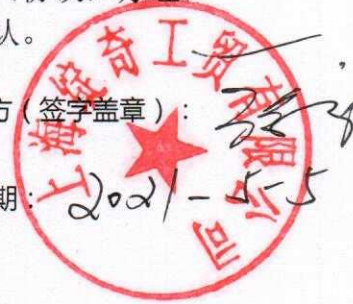 人。
方（签字盖章）：
期：2021-5-5
上海绽奇工贸有限公司